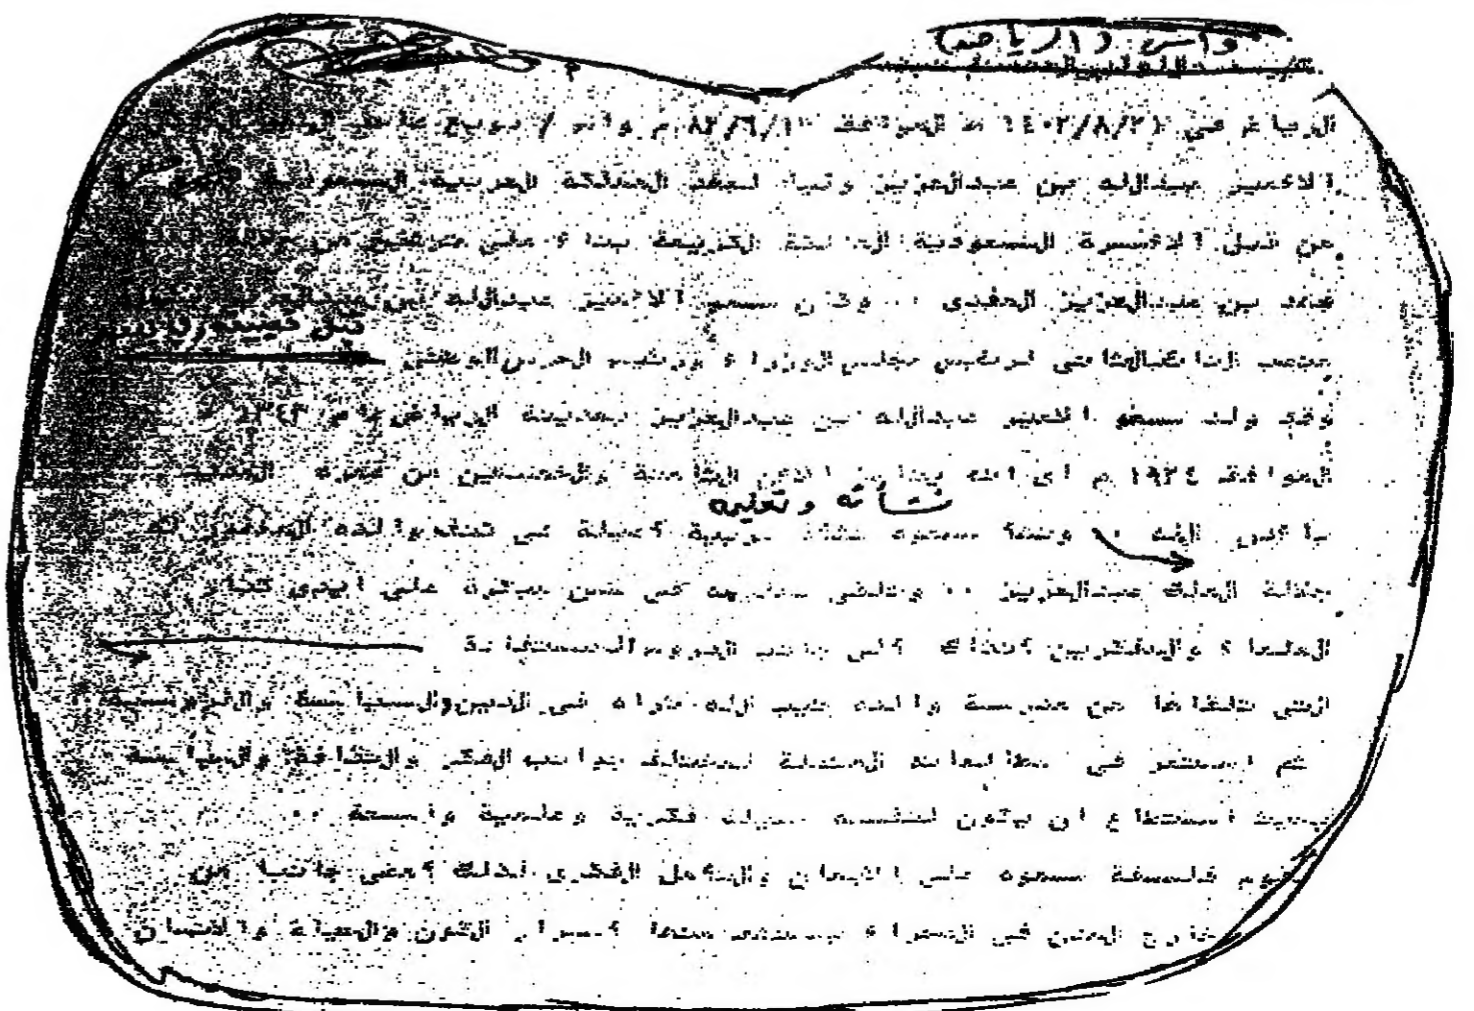 واس (الرياض)
الرياض في ١٤٠٢/٨/٢١ هـ الموافق ٨٢/٦/١٢ م واس / بويع صاحب
الأمير عبدالله بن عبدالعزيز وليا لعهد المملكة العربية السعودية
من قبل الأسرة السعودية المالكة الكريمة بناء على
فهد بن عبدالعزيز المفدى .. وكان سمو الأمير عبدالله بن عبدالعزيز
قبل تعيينه وليا
منصب النائب الثاني لرئيس مجلس الوزراء ورئيس الحرس الوطني
وقد ولد سمو الأمير عبدالله بن عبدالعزيز بمدينة الرياض عام ١٣٤٣
الموافق ١٩٢٤ م أي أنه يناهز الآن الثامنة والخمسين من عمره
نشأته وتعليمه
بإذن الله . ونشأ سموه نشأة عربية أصيلة في كنف والده المغفور له
جلالة الملك عبدالعزيز .. وتلقى تعليمه في سن مبكرة على أيدي كبار
العلماء والمفكرين آنذاك إلى جانب الدروس المستفادة
التي تلقاها من مدرسة والده طيب الله ثراه في الدين والسياسة والفروسية
ثم استمر في مطالعاته المتصلة لمختلف جوانب الفكر والثقافة والسياسة
بحيث استطاع أن يكون لنفسه حصيلة فكرية وعلمية واسعة ..
تقوم فلسفة سموه على الإيمان والتأمل الفكري لذلك أمضى جانبا من
خارج المدن في الصحراء يستشف منها أسرار الكون والحياة والإنسان